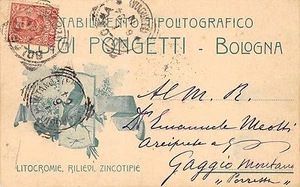 STABILIMENTO TIPOLITOGRAFICO
LUIGI PONGETTI - BOLOGNA
Al M. R.
D. Emanuele Meotti
Arciprete a
Gaggio Montano
"Porretta"
LITOCROMIE, RILIEVI, ZINCOTIPIE